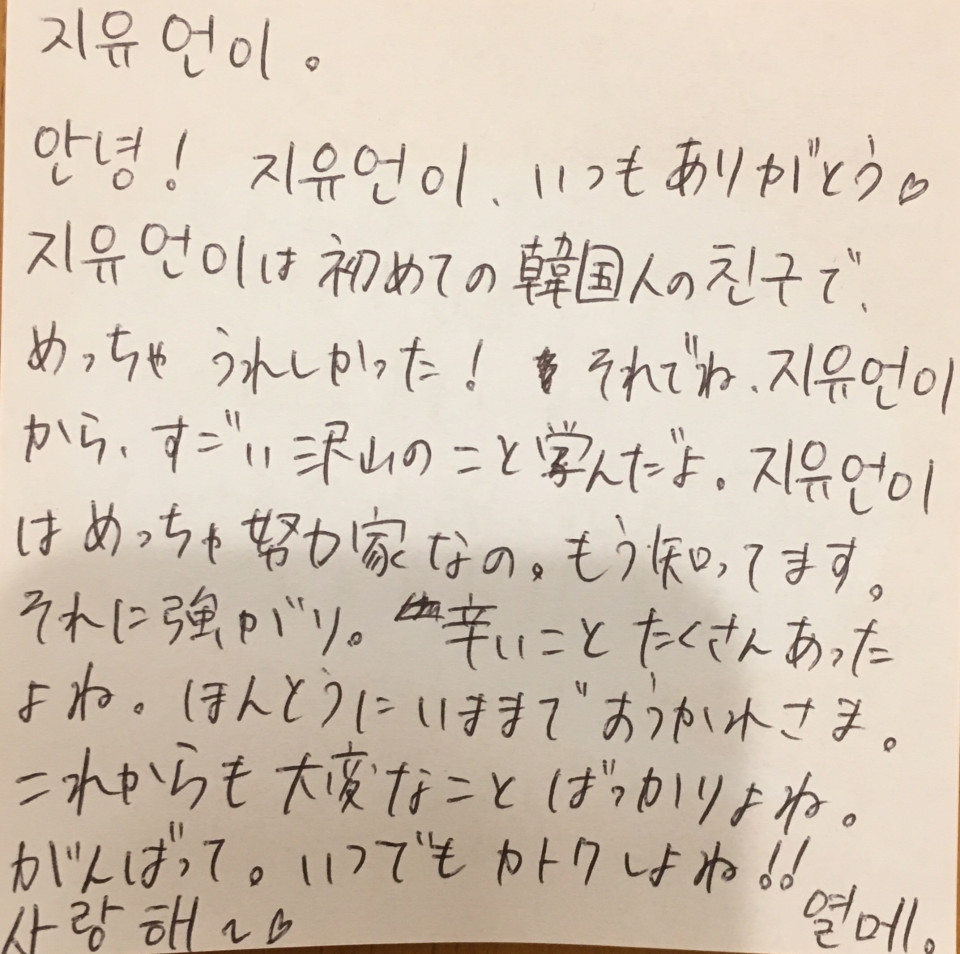 지유 언이。
안녕! 지유언이、いつもありがとう♡
지유언이は初めての韓国人の친구で、
めっちゃ うれしかった! それでね、지유언이
から、すごい沢山のこと学んだよ。지유언이
はめっちゃ努力家なの。もう知ってます。
それに強がり。辛いこと たくさんあった
よね。ほんとうにいままでおうかれさま。
これからも大変なこと ばっかりよね。
がんばって。いつでも カトクしよね!!
사랑해~♡ 열메。